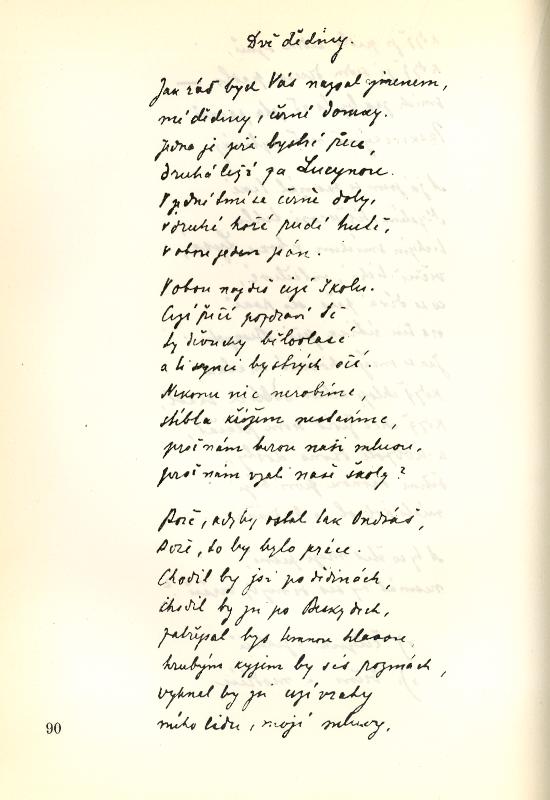 Dvě dědiny.
Jak rád bych Vás nazval jmenem,
mé dědiny, černé domky.
Jedna je při bystré řece,
druhá leží za Lucynou.
V jedné tmí se černé doly,
v druhé hoří rudé hutě,
v obou jeden pán.
V obou najdeš cizí školu.
Cizí řečí pozdraví tě
ty děvucky běloolasé
a ti synci bystrých očí.
Nikomu nic nerobíme,
stébla křížem nestavíme,
proč nám berou naši mluvu,
proč nám vzali naše školy?
Bože, kdyby ostal tak Ondráš,
Bože, to by bylo práce.
Chodil by jsi po dědinách,
chodil by jsi po Beskydech,
potřepal bys temnou hlavou
hrubým kyjem by ses rozmách,
vyhnal by jsi cizí vrahy
mého lidu, mojí mluvy,
90